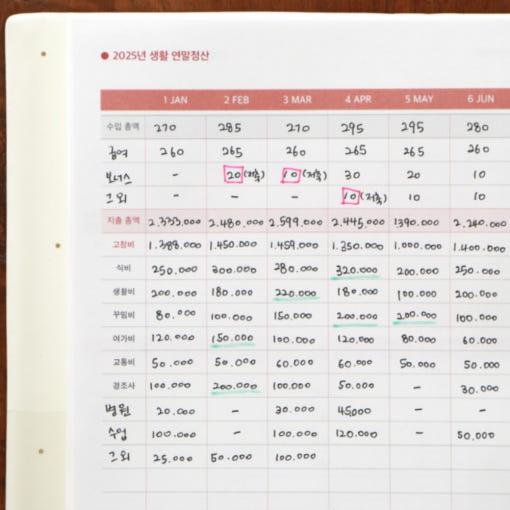 2025년 생활 연말정산
1 JAN 2 FEB 3 MAR 4 APR 5 MAY 6 JUN
수입 총액 270 285 270 295 295 280
급여 260 265 260 265 265 260
보너스 - 20 (저축) 10 (저축) 30 20 10
그 외 - - - 10 (저축) 10 10
지출 총액 2.333.000 2.480.000 2.599.000 2.445.000 1390.000 2.240.000
고정비 1.388.000 1.450.000 1.459.000 1.350.000 1.000.000 1.400.000
식비 250.000 300.000 280.000 320.000 200.000 250.000
생활비 200.000 180.000 220.000 180.000 100.000 200.000
꾸밈비 80.000 100.000 150.000 200.000 200.000 100.000
여가비 120.000 150.000 100.000 120.000 80.000 60.000
교통비 50.000 50.000 60.000 60.000 50.000 50.000
경조사 100.000 200.000 100.000 50.000 - 30.000
병원 20.000 - 30.000 45,000 - -
수업 100.000 - 100.000 120.000 - 50.000
그 외 25.000 50.000 100.000